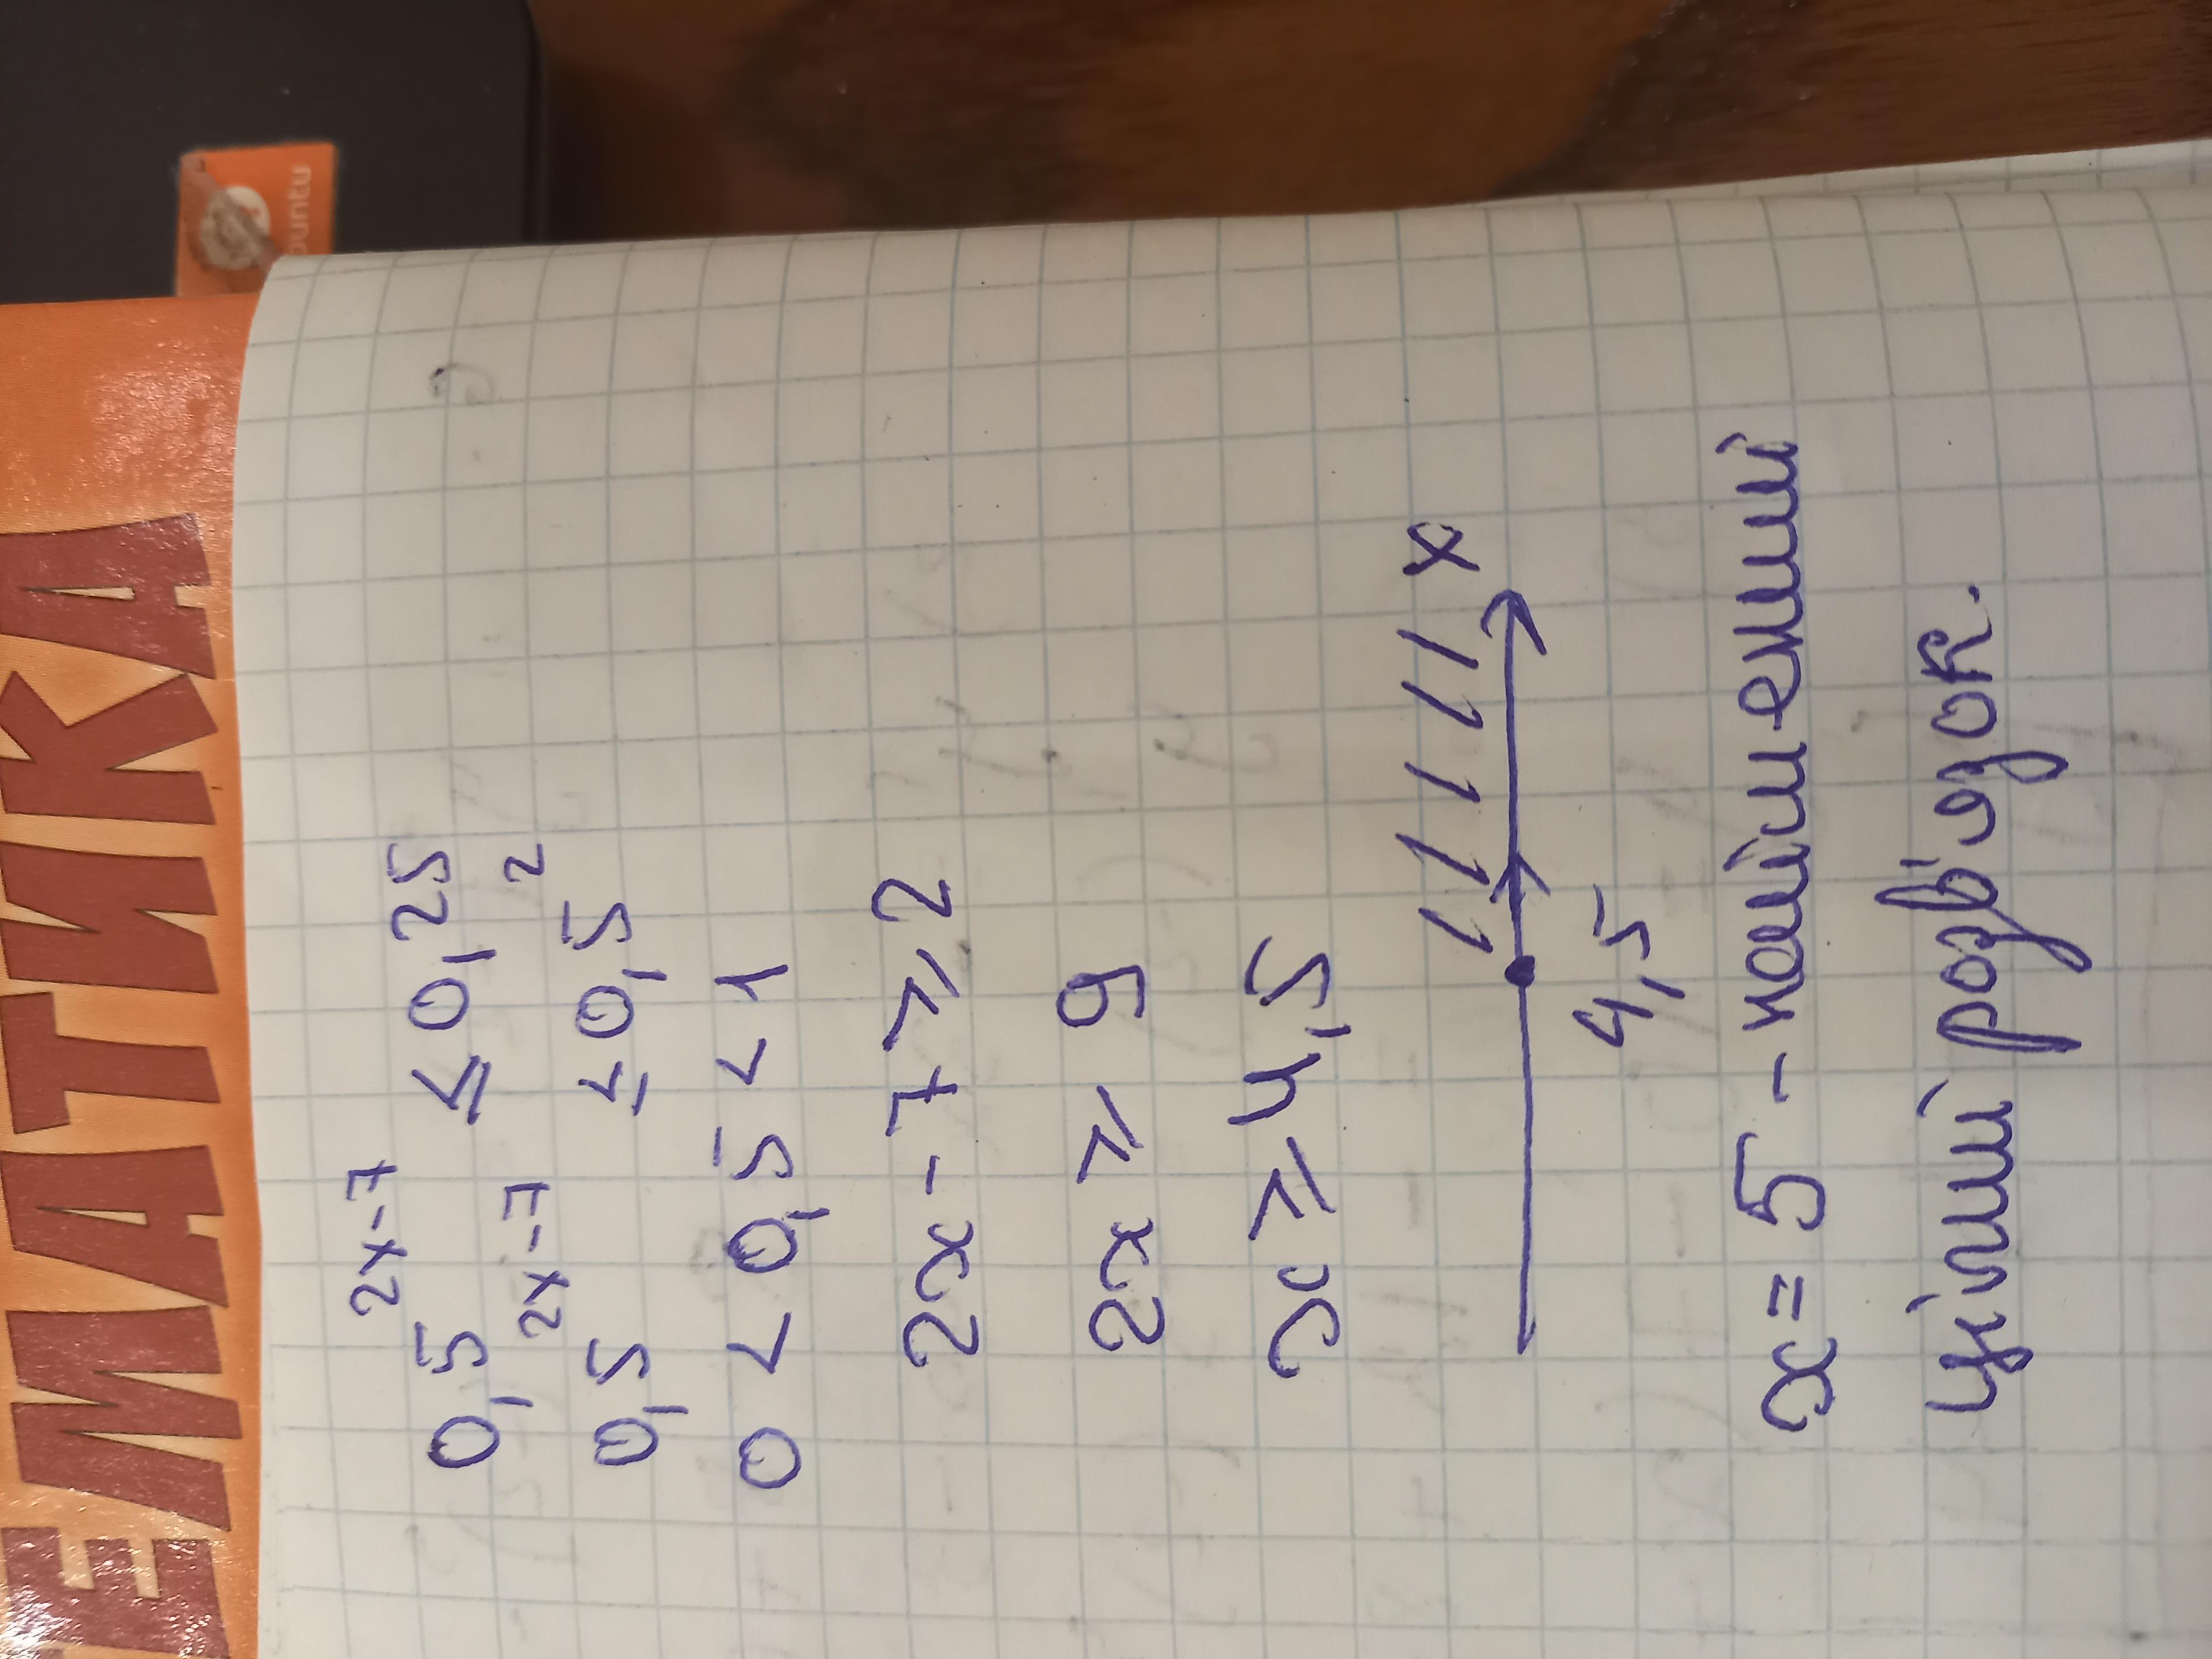 ЕМАТИКА
ubuntu
0,5^(2x-7) ≤ 0,25
0,5^(2x-7) ≤ 0,5^2
0 < 0,5 < 1
2x - 7 ⩾ 2
2x ⩾ 9
x ⩾ 4,5
x
4,5
x = 5 - найменший
цілий розв'язок.